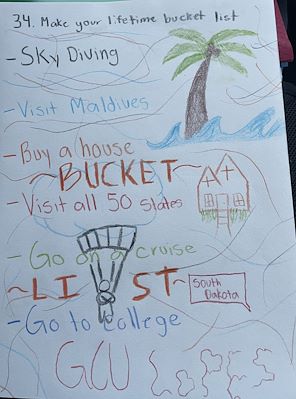 34. Make your lifetime bucket list
- Sky Diving
- Visit Maldives
- Buy a house
~BUCKET~
- Visit all 50 states
- Go on a cruise
~LIST~
South
Dakota
- Go to college
GCU LOPES